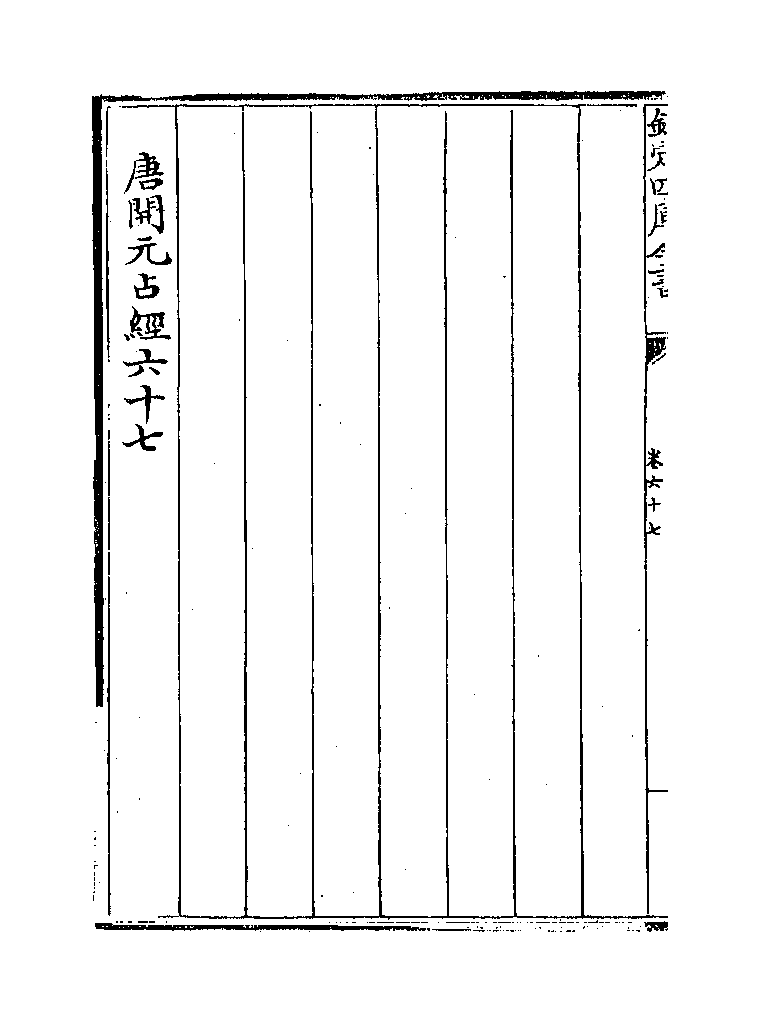 欽定四庫全書
卷六十七
唐開元占經六十七